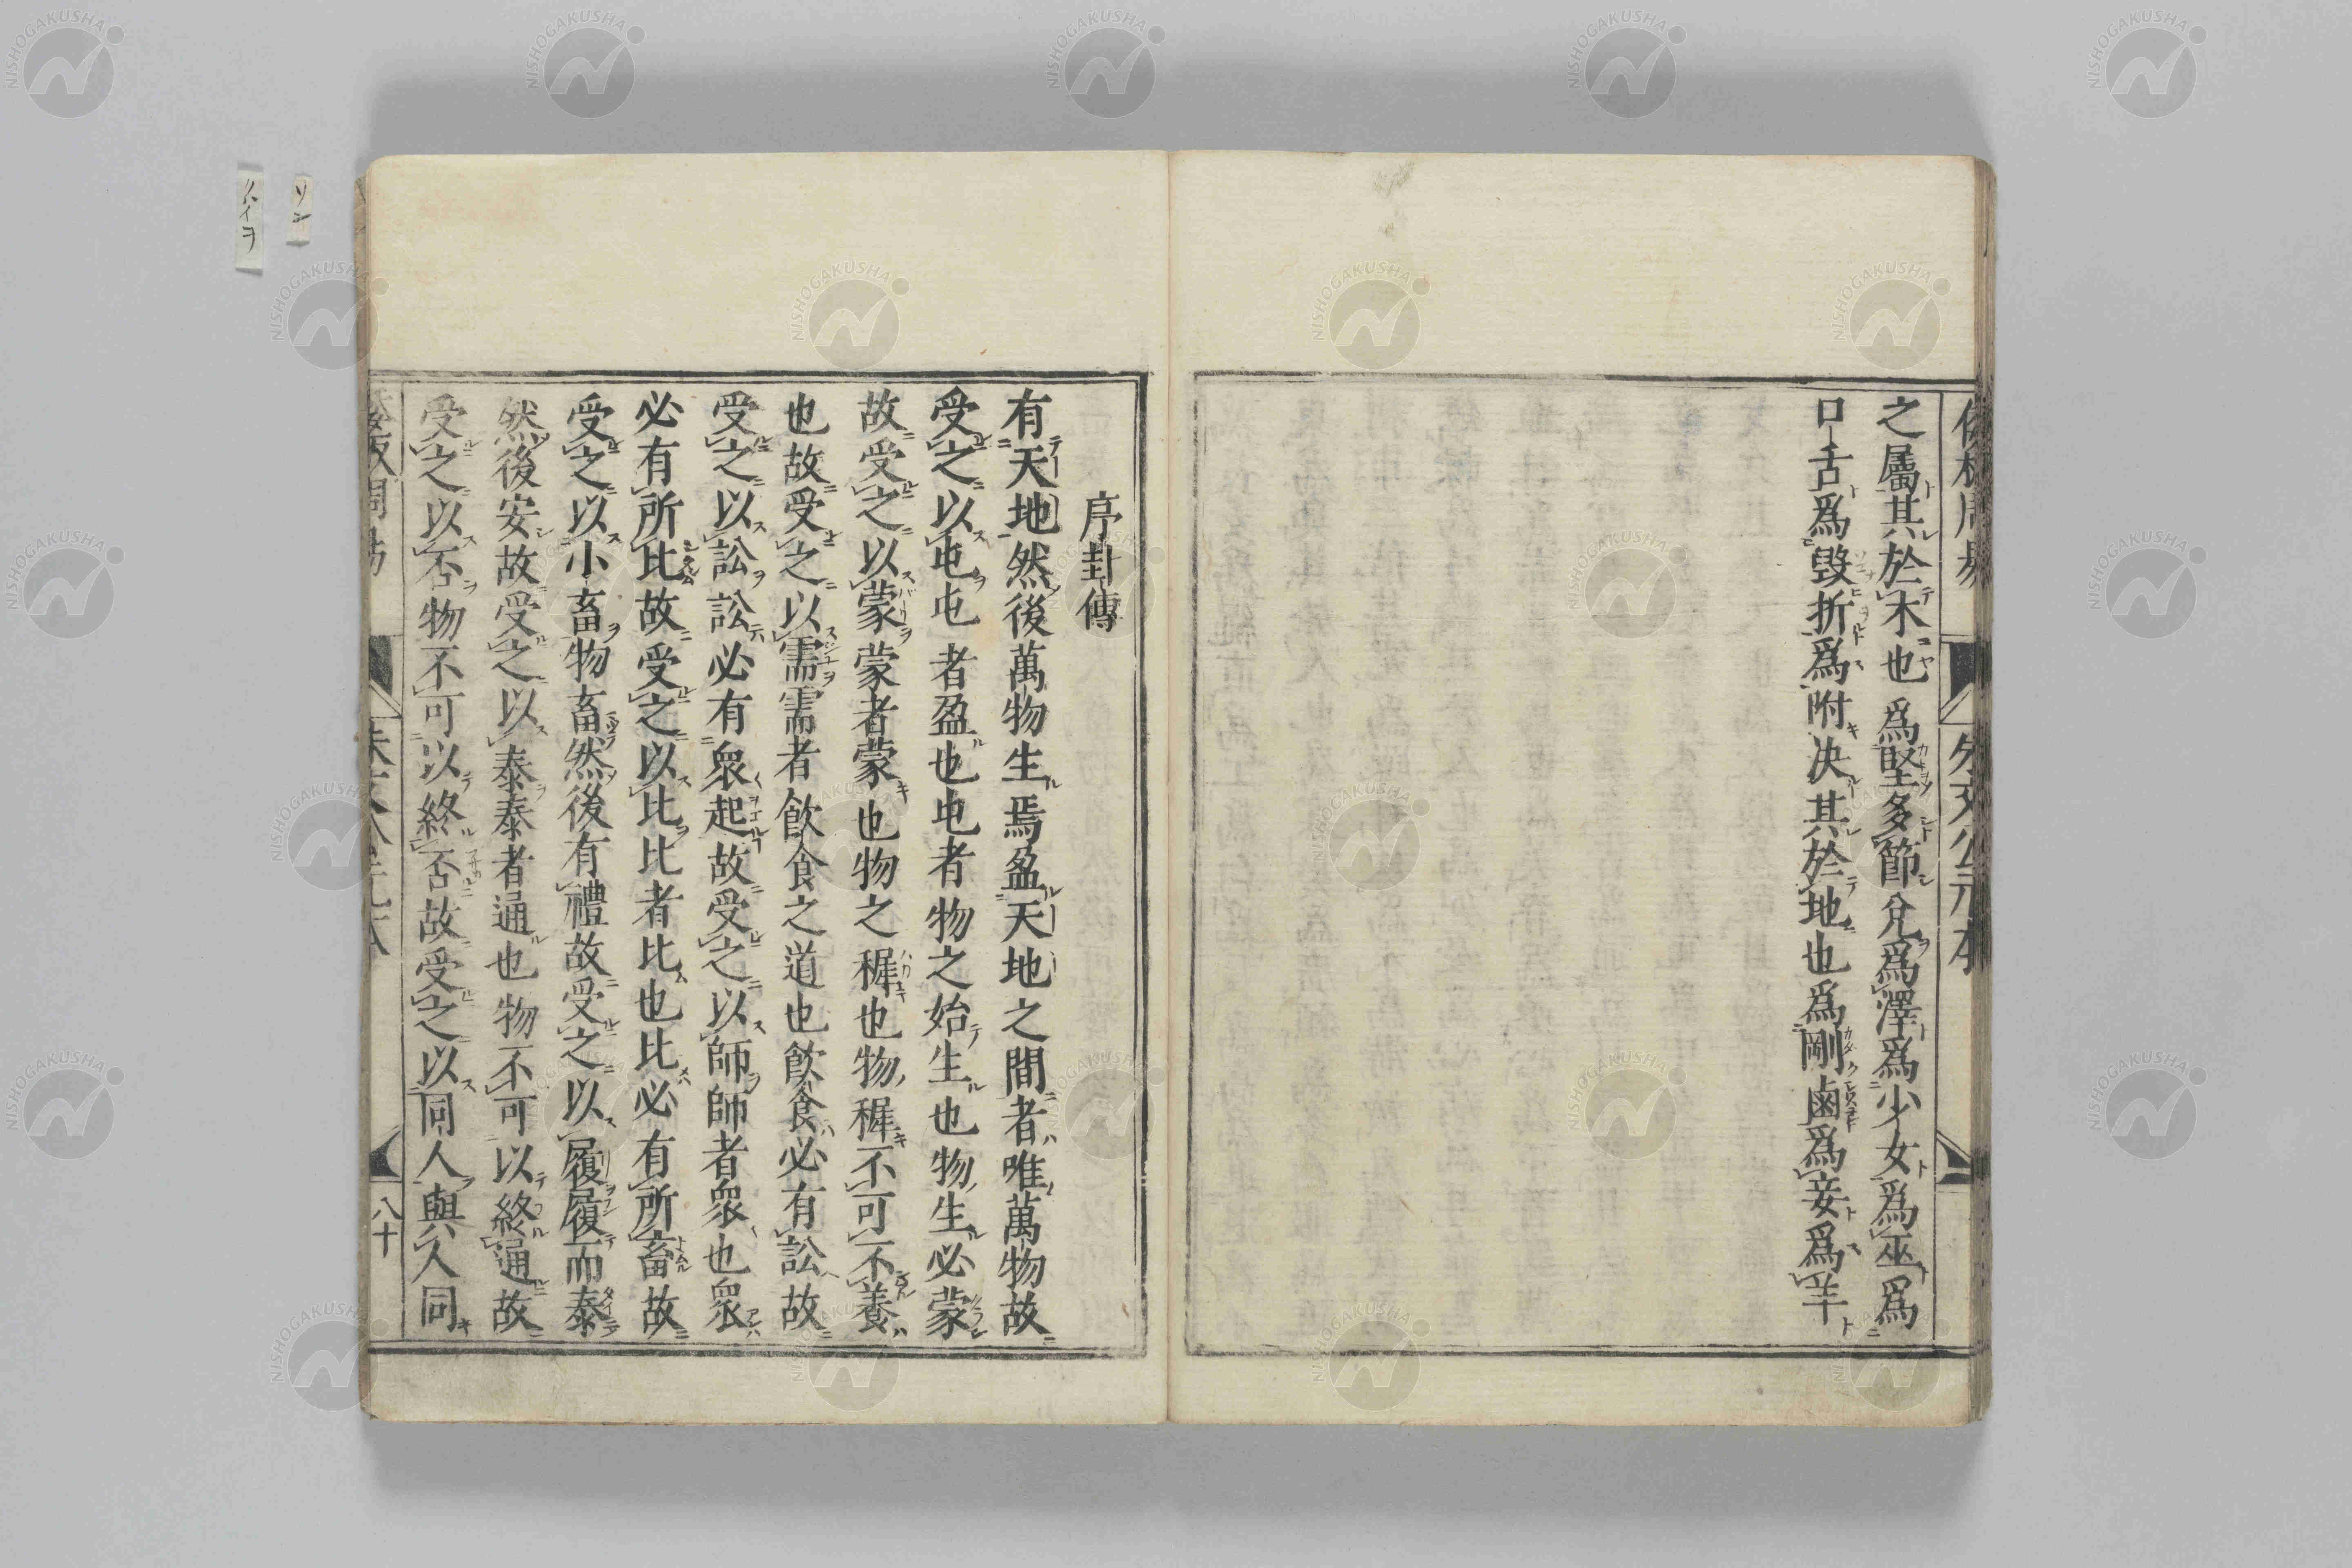 之屬其於木也爲堅多節兌爲澤爲少女爲巫爲
口舌爲毁折爲附决其於地也爲剛鹵爲妾爲羊
序卦傳
有天地然後萬物生焉盈天地之間者唯萬物故
受之以屯屯者盈也屯者物之始生也物生必蒙
故受之以蒙蒙者蒙也物之穉也物穉不可不養
也故受之以需需者飲食之道也飲食必有訟故
受之以訟訟必有衆起故受之以師師者衆也衆
必有所比故受之以比比者比也比必有所畜故
受之以小畜物畜然後有禮故受之以履履而泰
然後安故受之以泰泰者通也物不可以終通故
受之以否物不可以終否故受之以同人與人同
八十
NISHOGAKUSHA